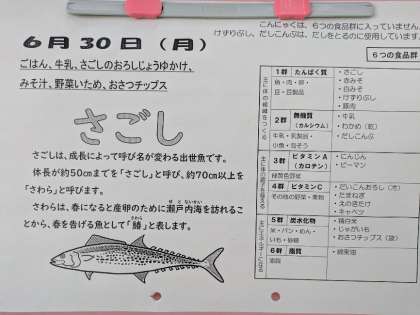 こんにゃくは、6つの食品群に入っていません。
けずりぶし、だしこんぶは、だしをとるのに使用しています。
6月30日（月）
ごはん、牛乳、さごしのおろしじょうゆかけ、
みそ汁、野菜いため、おさつチップス
さごし
さごしは、成長によって呼び名が変わる出世魚です。
体長が約50cmまでを「さごし」と呼び、約70cm以上を
「さわら」と呼びます。
さわらは、春になると産卵のために瀬戸内海を訪れるこ
とから、春を告げる魚として「鰆」と表します。
6つの食品群
1群 たんぱく質
魚・肉・卵・
豆・豆製品
・さごし
・赤みそ
・白みそ
・けずりぶし
・豚肉
2群 無機質
（カルシウム）
牛乳・乳製品・
小魚・海そう
・牛乳
・わかめ（乾）
・だしこんぶ
3群 ビタミンA
（カロテン）
緑黄色野菜
・にんじん
・ピーマン
4群 ビタミンC
その他の野菜・果物
・だいこんおろし（冷）
・たまねぎ
・えのきたけ
・キャベツ
5群 炭水化物
米・パン・めん・
いも・砂糖
・精白米
・じゃがいも
・おさつチップス（袋）
6群 脂質
油脂
・綿実油